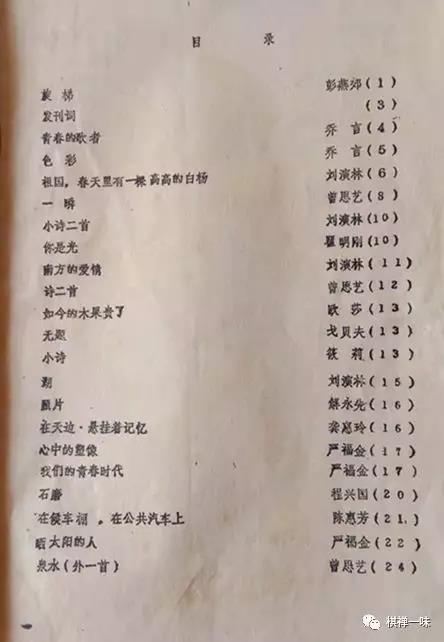 目 录
旋 梯 彭燕郊(1)
发刊词 (3)
青春的歌者 乔 言(4)
色 彩 乔 言(5)
祖国，春天里有一棵高高的白杨 刘演林(6)
一 瞬 曾思艺(8)
小诗二首 刘演林(10)
你是光 瞿明刚(10)
南方的爱情 刘演林(11)
诗二首 曾思艺(12)
如今的木果贵了 欧 莎(13)
无题 戈贝夫(13)
小诗 筱 莉(13)
湖 刘演林(15)
照片 解永先(16)
在天边·悬挂着记忆 龚惠玲(16)
心中的塑像 严福金(17)
我们的青春时代 严福金(17)
石磨 程兴国(20)
在候车棚，在公共汽车上 陈惠芳(21)
晒太阳的人 严福金(22)
泉水(外一首) 曾思艺(24)
棋禅一味